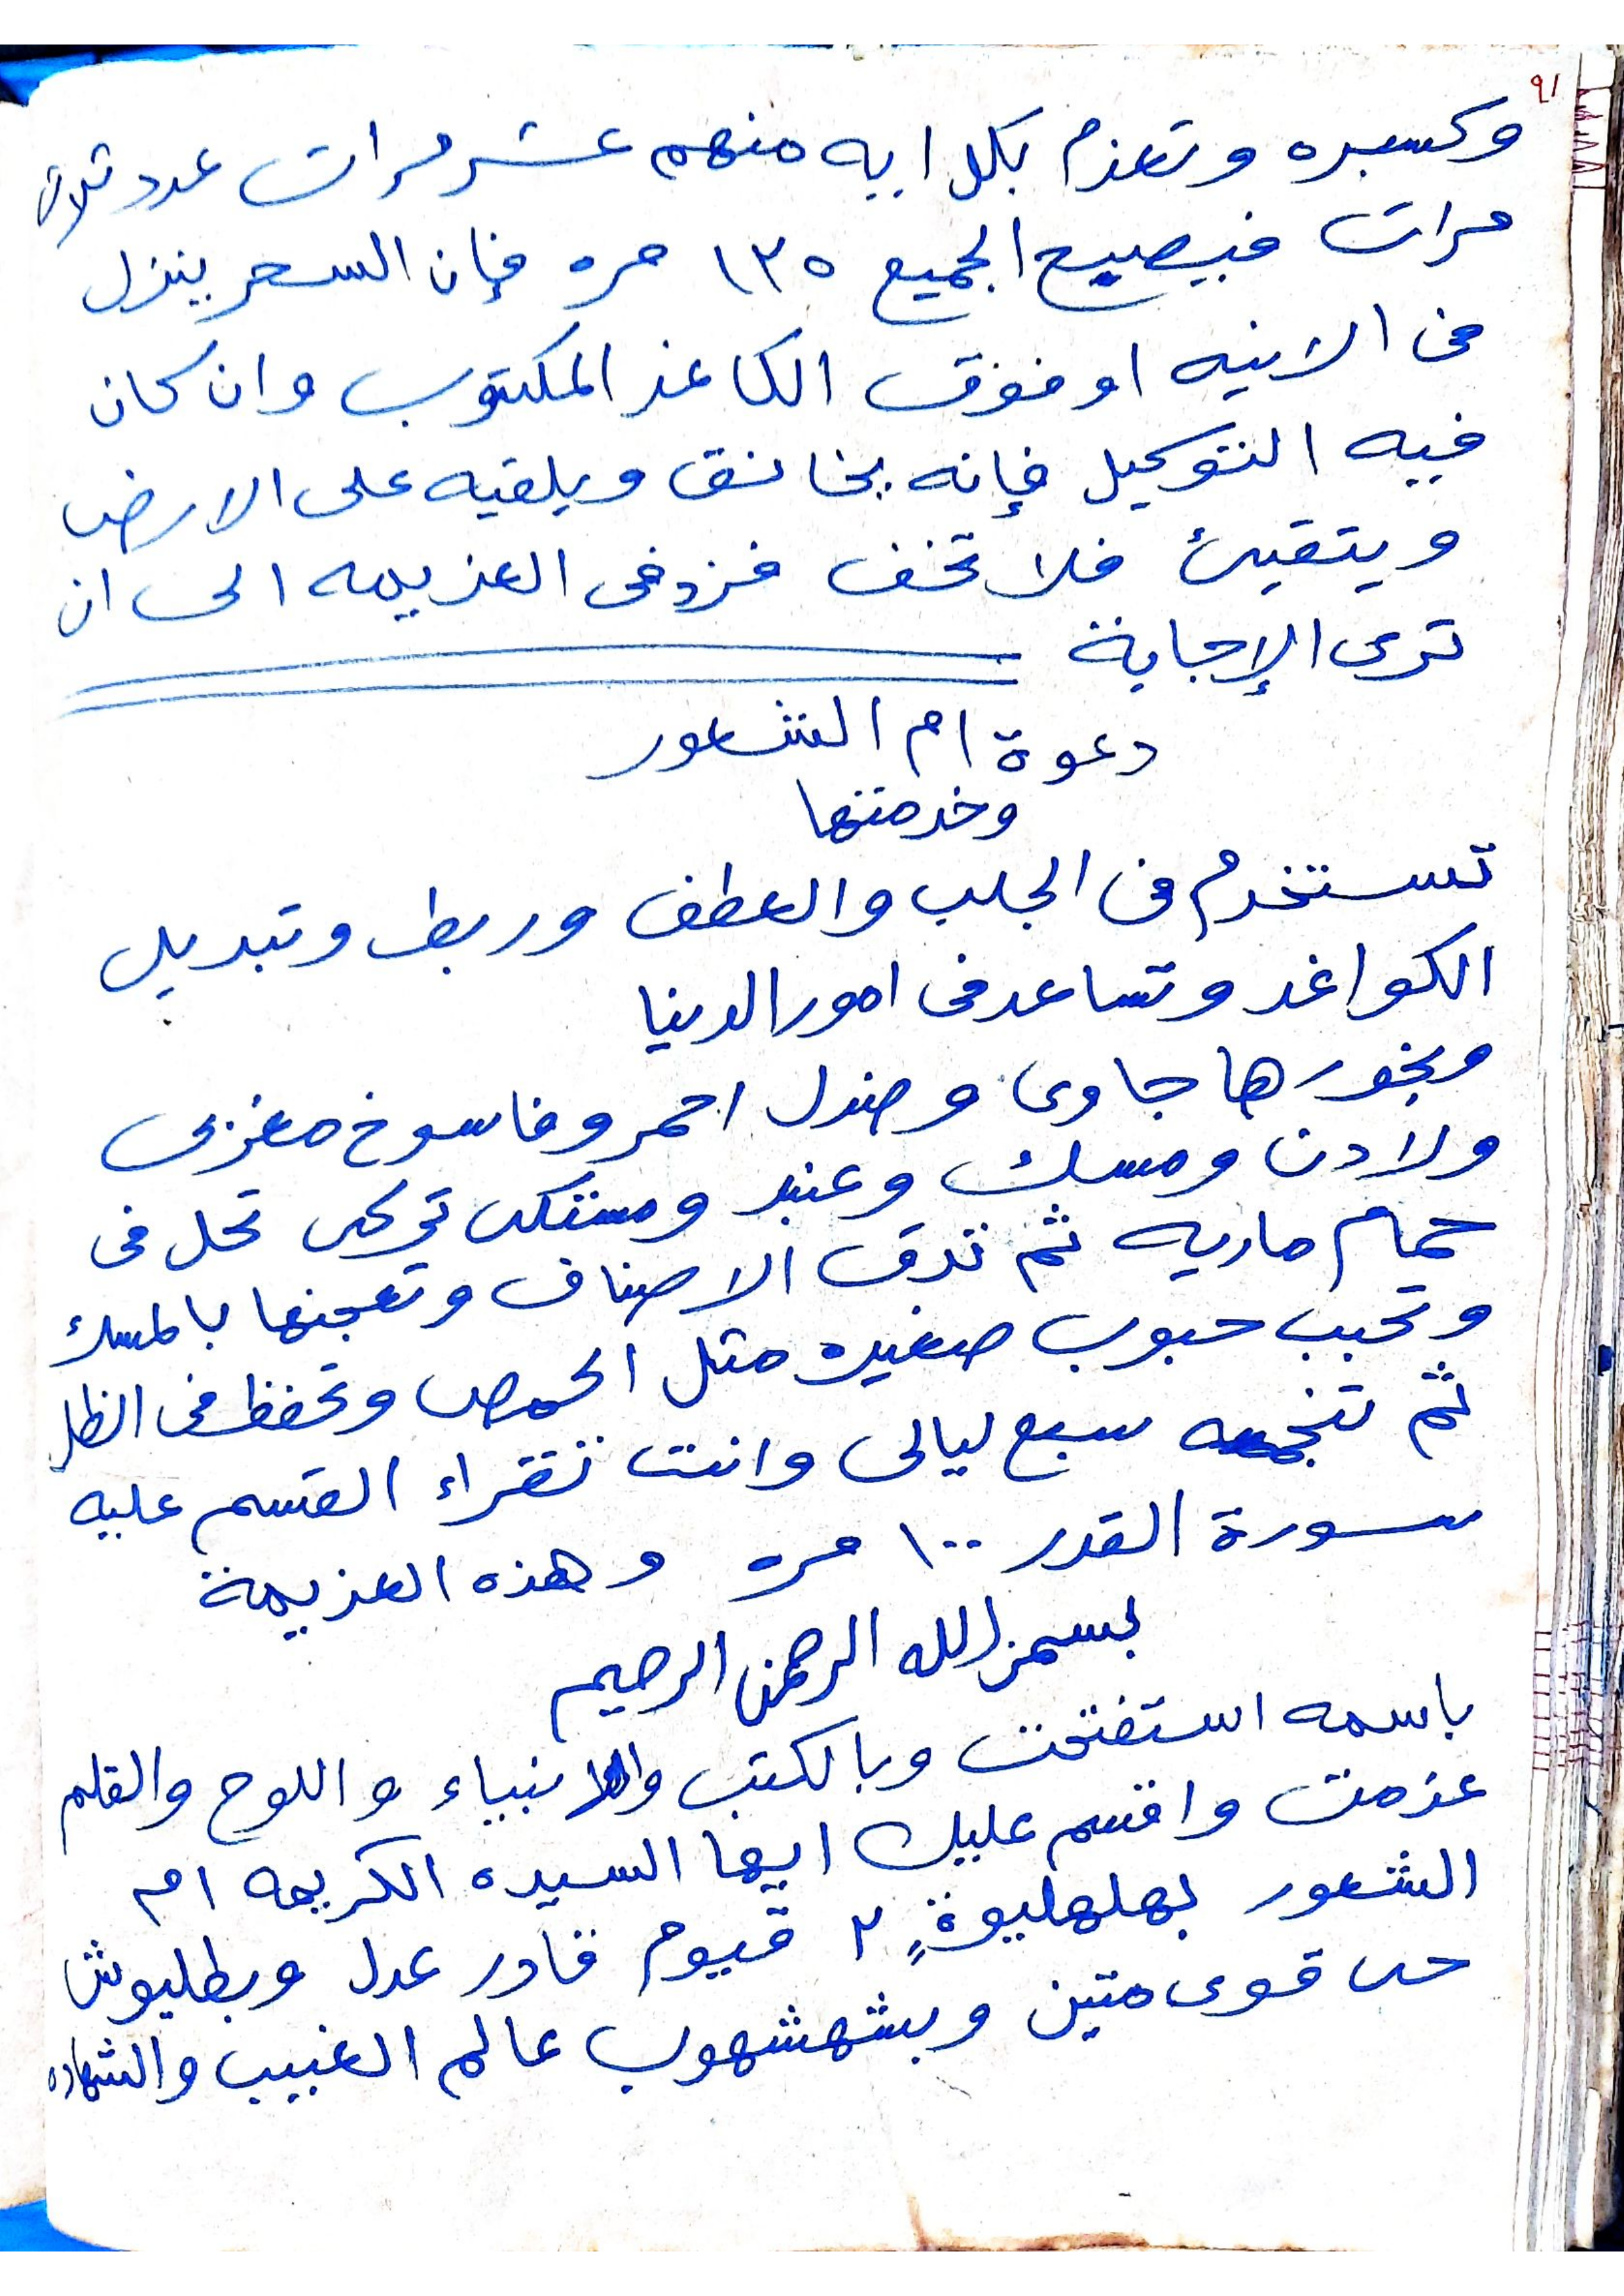 ٩١
وكسبره وتعزم بكل ايه منهم عشر مرات عدد ثلاث
مرات فيصبح الجميع ١٣٥ مره فإن السحر ينزل
فى الانيه او فوق الكاغد المكتوب وان كان
فيه التوكيل فإنه يخانق ويلقيه على الارض
ويتقيئ فلا تخف فزد فى العزيمه الى ان
ترى الإجابة
دعوة ام الشعور
وخدمتها
تستخدم فى الجلب والعطف وربط وتبديل
الكواغد وتساعد فى امور الدنيا
وبخورها جاوى وصندل احمر وفاسوخ مغربى
ولادن ومسك وعنبر ومستكى تركى تحل فى
حمام ماريه ثم تدق الاصناف وتعجنها بالمسك
وتحبب حبوب صغيره مثل الحمص وتحفظ فى الظل
ثم تنجمه سبع ليالى وانت تقراء القسم عليه
سورة القدر ١٠٠ مره وهذه العزيمة
بسم الله الرحمن الرحيم
باسمه استفتحت وبالكتب والانبياء واللوح والقلم
عزمت واقسم عليك ايها السيده الكريمه ام
الشعور بهلهليوةٍ ٢ قيوم قادر عدل وبطليوش
حى قوى متين وبشهشهوب عالم الغيب والشهاده